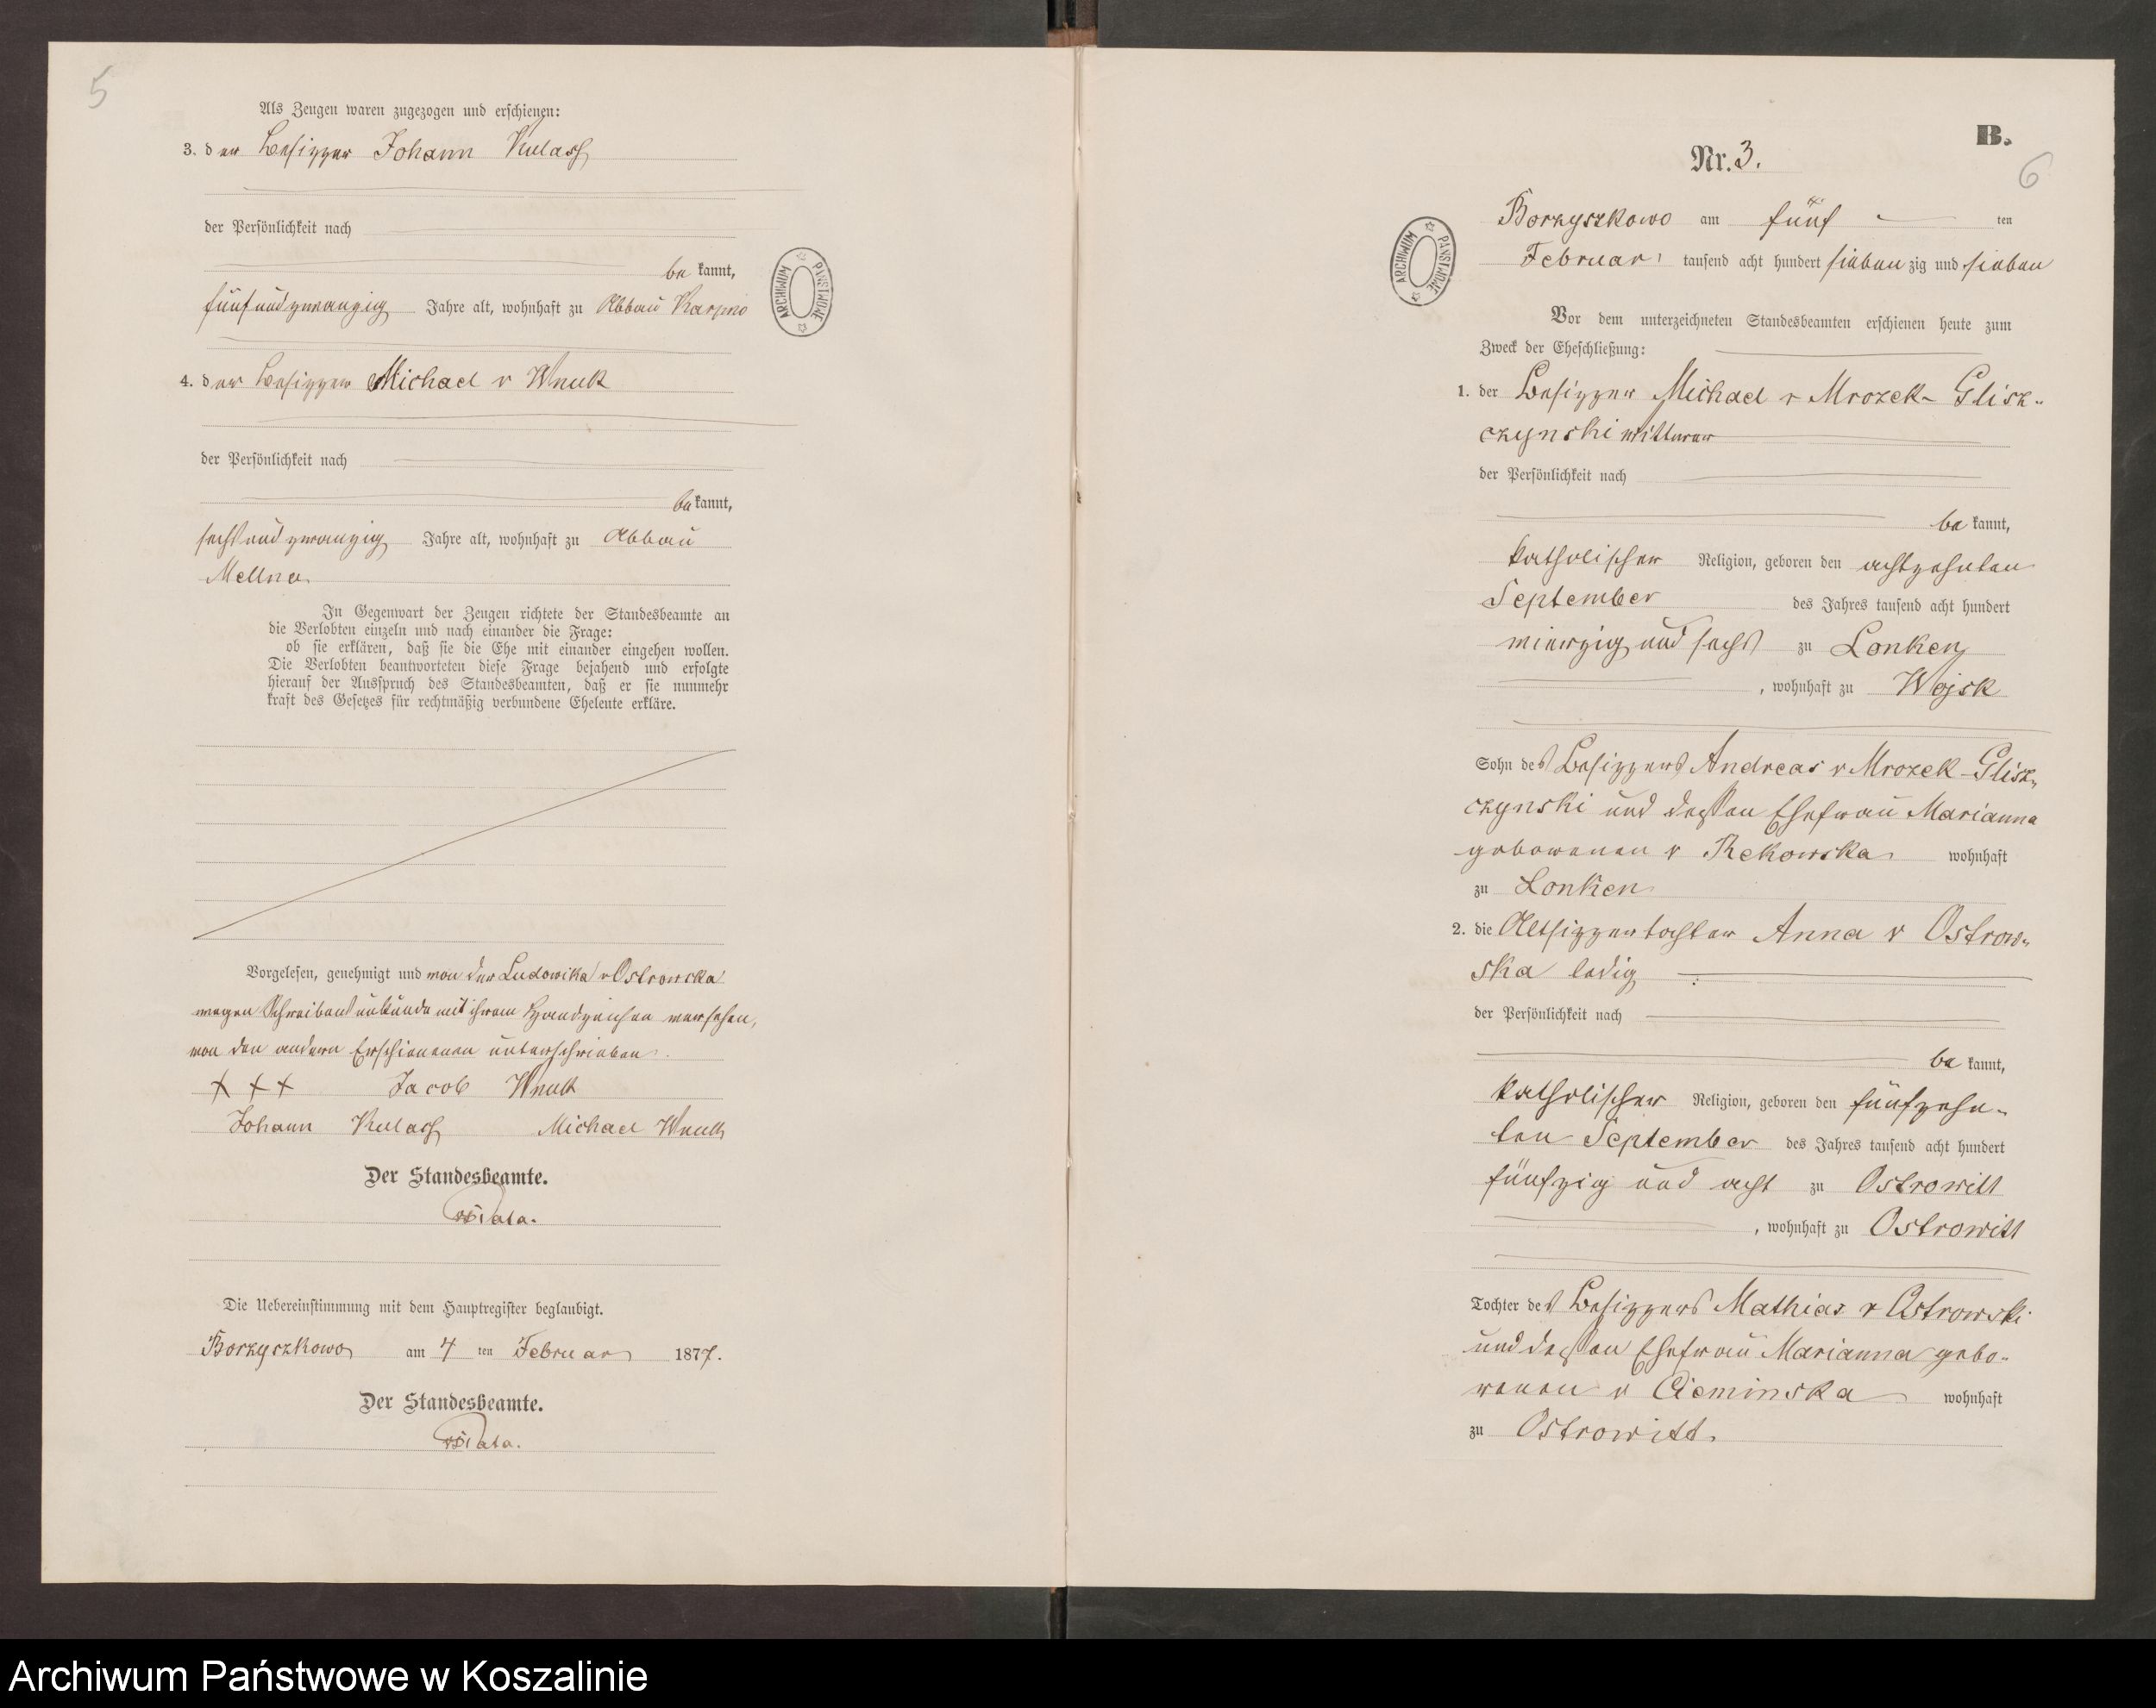 5
Als Zeugen waren zugezogen und erschienen:
3. der Besitzer Johann Kulass
der Persönlichkeit nach
be kannt,
fünfundzwanzig Jahre alt, wohnhaft zu Abbau Karpno
4. der Besitzer Michael v Wnuk
der Persönlichkeit nach
be kannt,
sechsundzwanzig Jahre alt, wohnhaft zu Abbau
Mellno
In Gegenwart der Zeugen richtete der Standesbeamte an
die Verlobten einzeln und nach einander die Frage:
ob sie erklären, daß sie die Ehe mit einander eingehen wollen.
Die Verlobten beantworteten diese Frage bejahend und erfolgte
hierauf der Ausspruch des Standesbeamten, daß er sie nunmehr
kraft des Gesetzes für rechtmäßig verbundene Eheleute erkläre.
Vorgelesen, genehmigt und von der Ludowika v Ostrowska
wegen Schreibens unkunde mit ihrem Handzeichen versehen,
von den andern Erschienenen unterschrieben.
+ + + Jacob Wnuk
Johann Kulass Michael Wnuk
Der Standesbeamte.
Die Uebereinstimmung mit dem Hauptregister beglaubigt.
Borzyszkowo am 4 ten Februar 1877.
Der Standesbeamte.
ARCHIWUM PAŃSTWOWE
B.
Nr. 3.
6
Borzyszkowo am fünf ten
Februar tausend acht hundert sieben zig und sieben
Vor dem unterzeichneten Standesbeamten erschienen heute zum
Zweck der Eheschließung:
1. der Besitzer Michael v Mrozek-Glisz-
czynski Wittwer
der Persönlichkeit nach
be kannt,
katholischer Religion, geboren den achtzehnten
September des Jahres tausend acht hundert
vierzig und sechs zu Lonken
, wohnhaft zu Wojsk
Sohn des Besitzers Andreas v Mrozek-Glisz-
czynski und dessen Ehefrau Marianna
geborenen v Rekowska wohnhaft
zu Lonken
2. die Altsitzertochter Anna v Ostrow-
ska ledig
der Persönlichkeit nach
be kannt,
katholischer Religion, geboren den fünfzehn-
ten September des Jahres tausend acht hundert
fünfzig und acht zu Ostrowitt
, wohnhaft zu Ostrowitt
Tochter des Besitzers Mathias v Ostrowski
und dessen Ehefrau Marianna gebo-
renen v Cieminska wohnhaft
zu Ostrowitt
ARCHIWUM PAŃSTWOWE
Archiwum Państwowe w Koszalinie